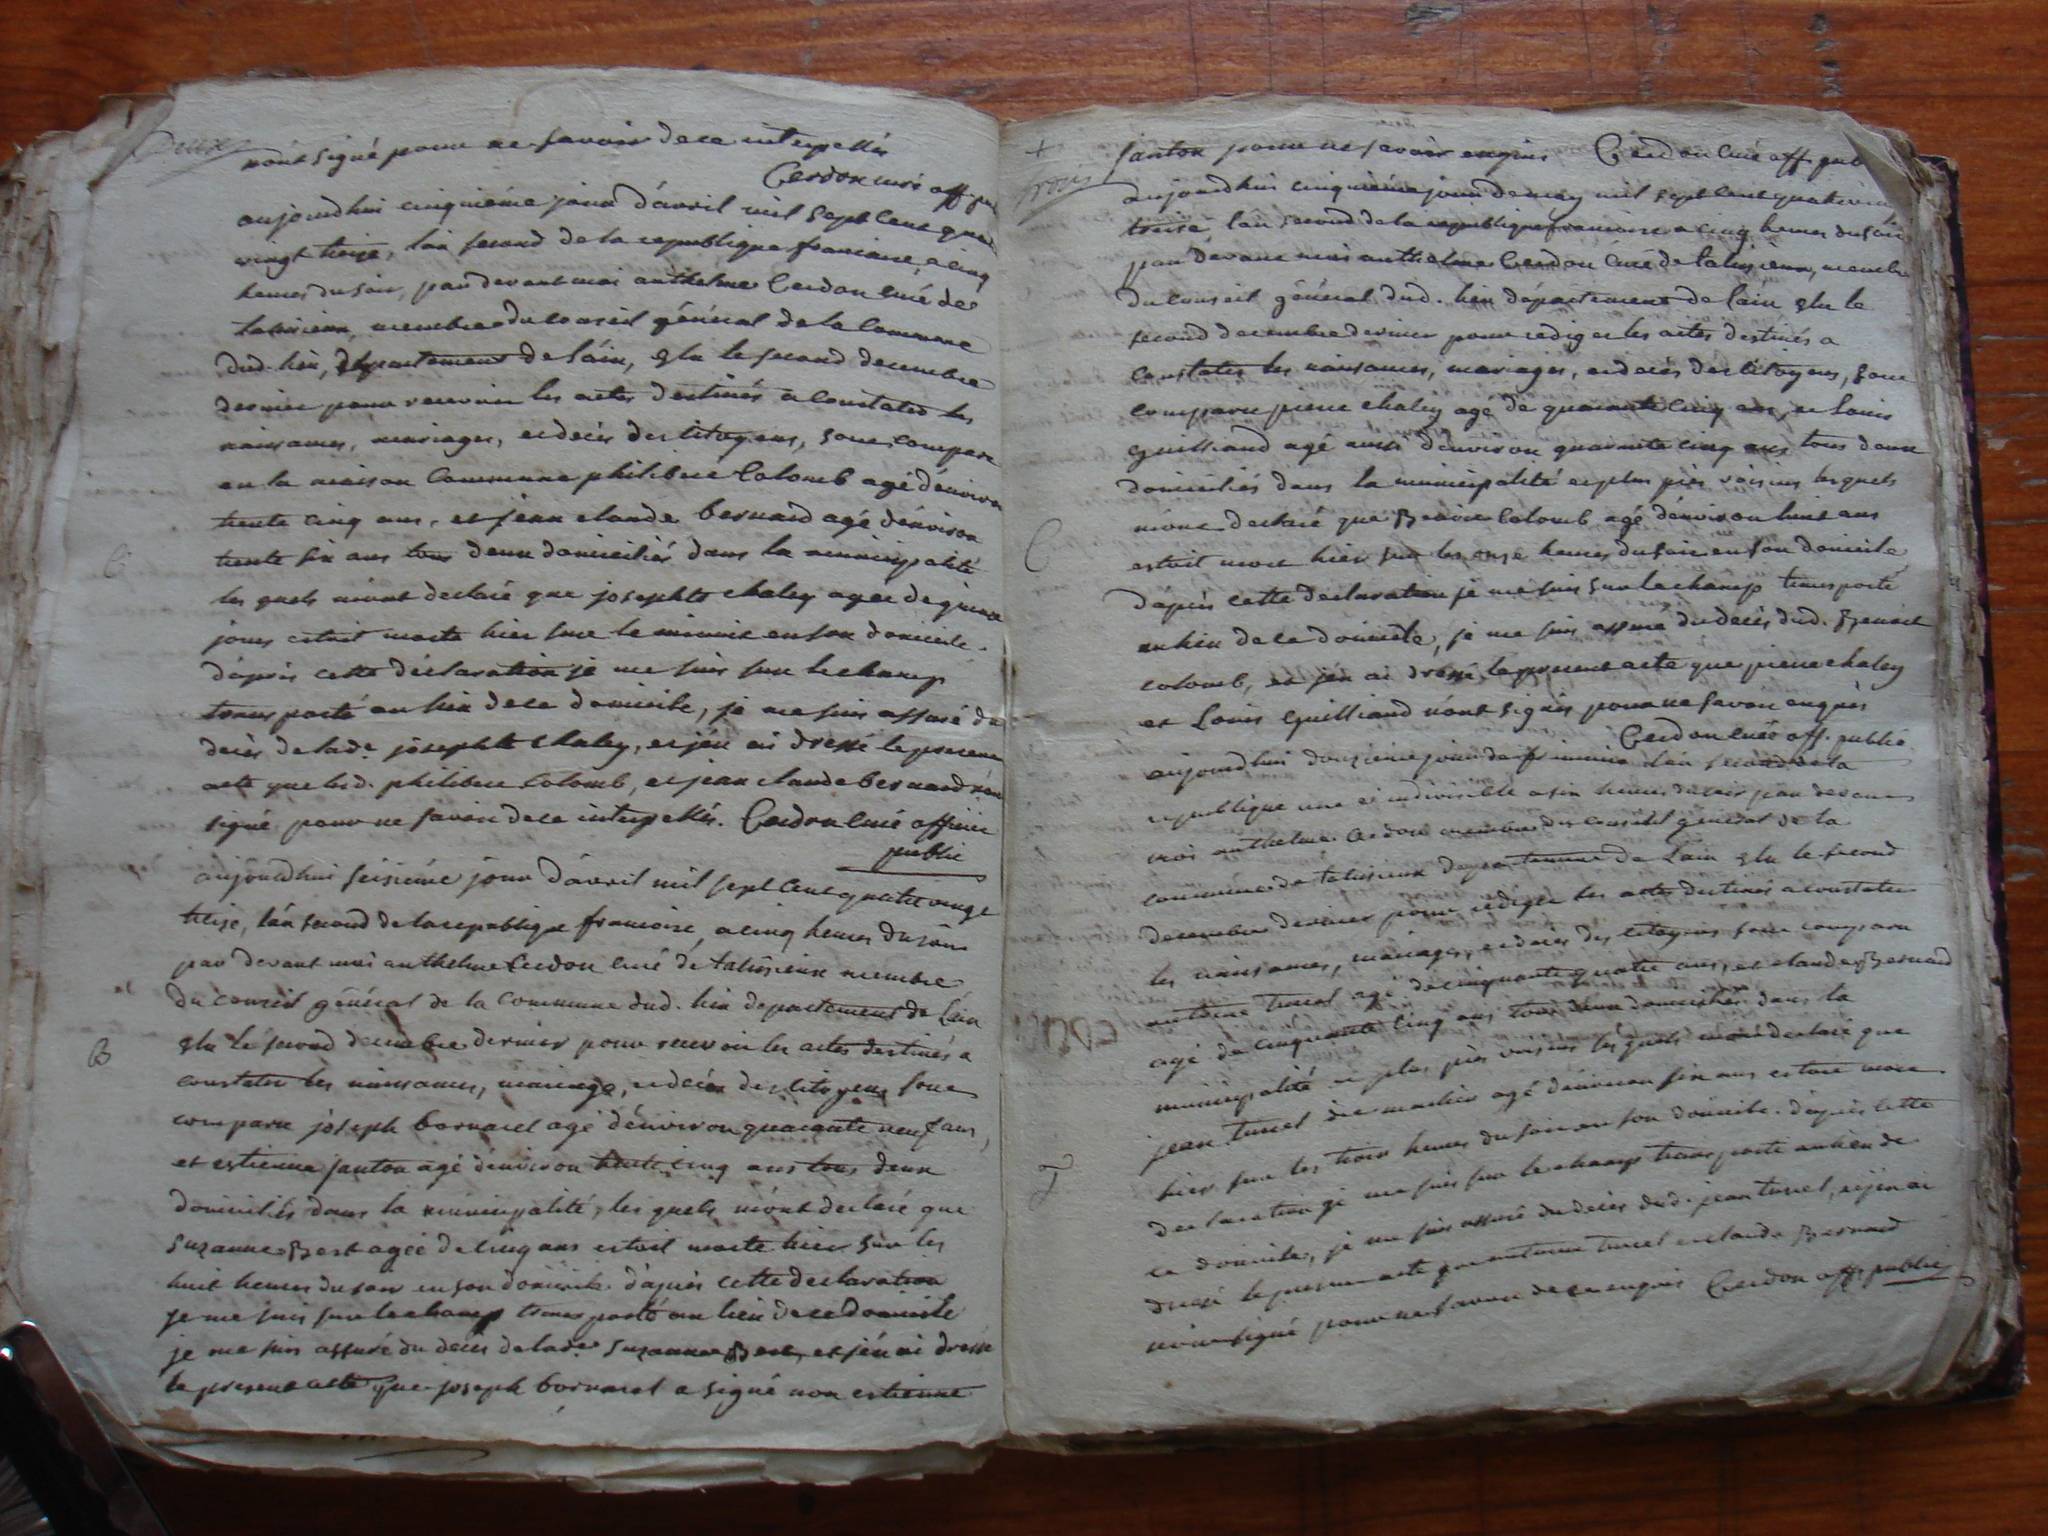 Deux
n'ont signé pour ne savoir de ce interpellés
Cerdon curé off. pu
aujourdhui cinquiéme jour d'avril mil sept cent quat
vingt treize, l'an second de la republique francaise, a cinq
heures du soir, par devant moi anthelme Cerdon curé de
talissieux, membre du conseil général de la Commune
dud. lieu, département de l'ain, élu le second decembre
dernier pour recevoir les actes destinés a constater les
naissances, mariages, et decés des citoyens, sont comparu
en la maison Commune philibert Colomb agé d'environ
trente cinq ans, et jean claude bernard agé d'environ
trente six ans tous deux domiciliés dans la municipalité
C
les quels m'ont declaré que josephte chaley agee de quinze
jours estoit morte hier sur le minuit en son domicile.
d'aprés cette déclaration je me suis sur le champ
transporté au lieu de ce domicile, je me suis assuré du
decès de lade. josephte chaley, et j'en ai dressé le present
acte que lesd. philibert Colomb, et jean claude bernard n'on
signé pour ne savoir de ce interpellés. Cerdon curé officier
public
aujourdhui seisiéme jour d'avril mil sept cent quatre vingt
treise, l'an second de la republique francoise, a cinq heures du soir
par devant moi anthelme Cerdon curé de talissieux membre
du conseil général de la Commune dud. lieu departement de l'ain
B
élu le second decembre dernier pour recevoir les actes destinés a
constater les naissances, mariage, et decés des citoyens sont
comparu joseph bornarel agé d'environ quarante neuf ans,
et estienne janton agé d'environ trente cinq ans tous deux
domiciliés dans la municipalité, les quels m'ont declaré que
suzanne Bert agée de cinq ans estoit morte hier sur les
huit heures du soir en son domicile. d'aprés cette declaration
je me suis sur le champ transporté au lieu de ce domicile
je me suis assuré du decés de lade. suzanne Bert, et j'en ai dressé
le present acte que joseph bornarel a signé non estienne
+
janton pour ne savoir enquis Cerdon curé off. pub
trois
aujourdhui cinquiéme jour de may mil sept cent quatre vin
treise l'an second de la republique francoise a cinq heures du soir
par devant moi anthelme Cerdon curé de talissieux, membre
du conseil général dud. lieu département de l'ain élu le
second decembre dernier pour rediger les actes destinés a
constater les naissances, mariages, et decés des citoyens, sont
comparu pierre chaley agé de quarante cinq ans, et Louis
Guilliand agé aussi d'environ quarante cinq ans tous deux
domiciliés dans la municipalité et plus près voisins lesquels
m'ont declaré que Benoit Colomb agé d'environ huit ans
C
estoit mort hier sur les onze heures du soir en son domicile
d'après cette declaration je me suis sur le champ transporté
au lieu de ce domicile, je me suis assuré du decés dud. Benoit
colomb, et j'en ai dressé le present acte que pierre chaley
et Louis Guilliand n'ont signés pour ne savoir enquis
Cerdon curé off. public
aujourdhui douzieme jour de frimaire l'an second de la
republique une et indivisible a six heures du soir par devant
moi anthelme Cerdon membre du conseil général de la
commune de talissieux departement de l'ain élu le second
decembre dernier pour rediger les actes destinés a constater
les naissances, mariages, et decés des citoyens sont comparu
antoine turrel agé de cinquante quatre ans, et claude Bernard
agé de cinquante cinq ans tous deux domiciliés dans la
municipalité et plus près voisins lesquels m'ont declaré que
jean turrel agé d'environ six ans estoit mort
T
hier sur les trois heures du soir en son domicile. d'après cette
declaration je me suis sur le champ transporté au lieu de
ce domicile, je me suis assuré du decés dud. jean turrel, et j'en ai
dressé le present acte que antoine turrel et claude Bernard
n'ont signé pour ne savoir de ce enquis Cerdon off. public